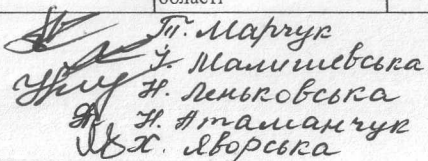 області
Т. Марчук
І. Малишевська
Н. Леньковська
Н. Атаманчук
Х. Яворська